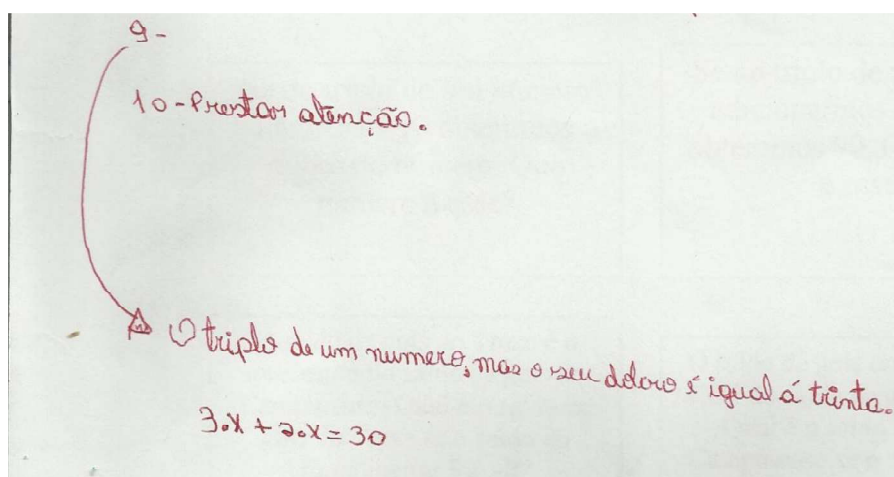 9-
10-Prestar atenção.
O triplo de um numero, mas o seu ddoro é igual á trinta.
3.x + 2.x = 30